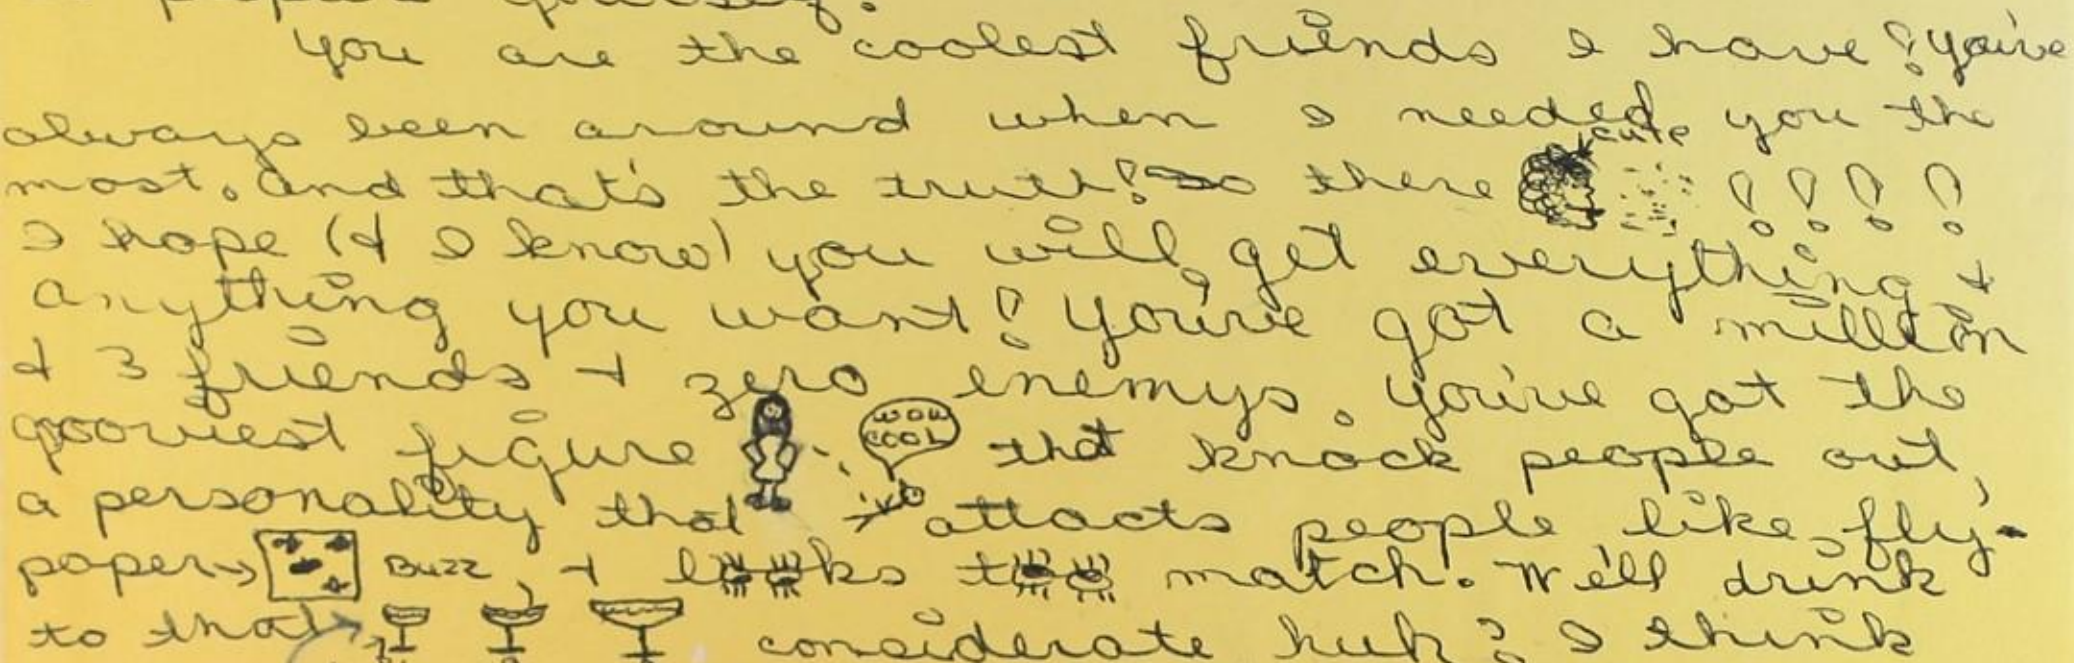 yourself.
You are the coolest friends I have! You've
always been around when I needed you the
cute
most. And that's the truth! So there !!!!
I hope (& I know) you will, get everything &
anything you want! You've got a million
& 3 friends & zero enemys. You've got the
grooviest figure WOW COOL that knock people out,
a personality that attacts people like fly-
paper BUZZ, & looks too match. We'll drink
to that considerate huh? I think